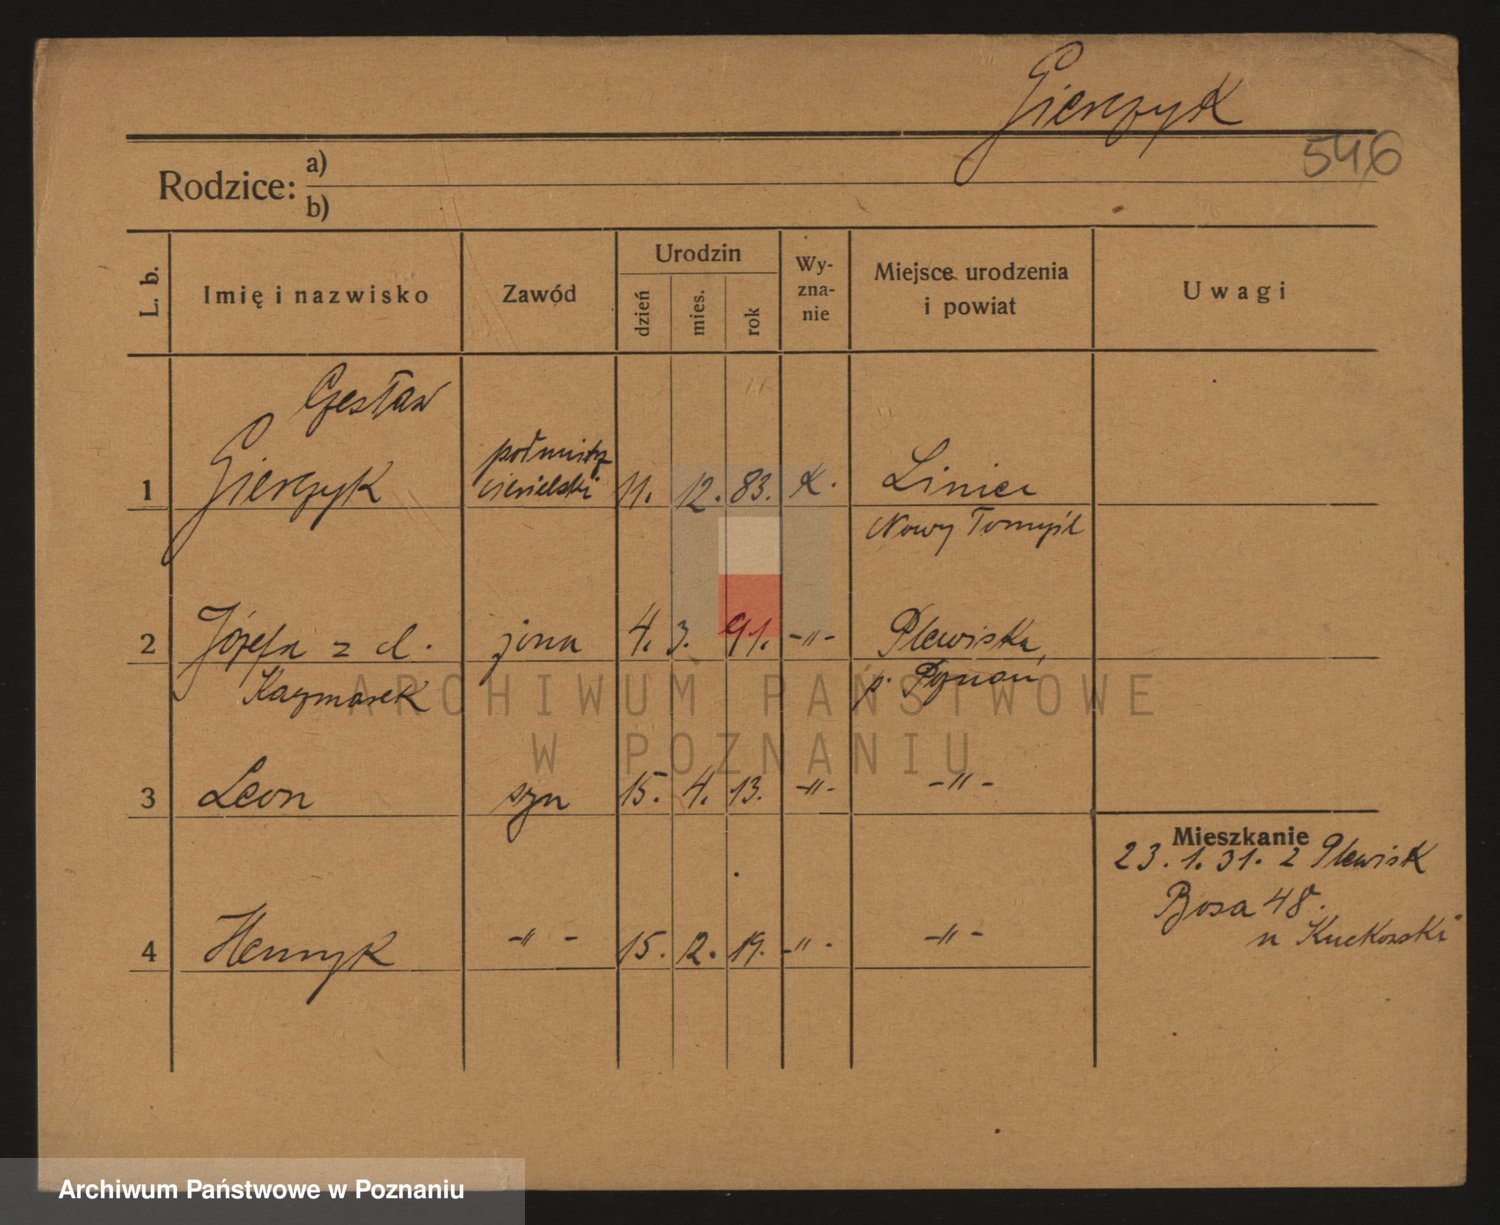 Gierczyk
546
Rodzice: a)
b)
L. b. Imię i nazwisko Zawód Urodzin dzień mies. rok Wy-zna-nie Miejsce urodzenia i powiat Uwagi
Czesław
1 Gierczyk ciesielski 11. 12. 83. K. Liniec
Nowy Tomyśl
2 Józefa z d. żona 4. 3. 91. -"- Plewiska
Kaczmarek p. Poznań
ARCHIWUM PAŃSTWOWE
W POZNANIU
3 Leon syn 15. 4. 13. -"- -"-
Mieszkanie
23. 1. 31. z Plewisk
Bosa 48.
4 Henryk -"- 15. 12. 19. -"- -"-
Archiwum Państwowe w Poznaniu